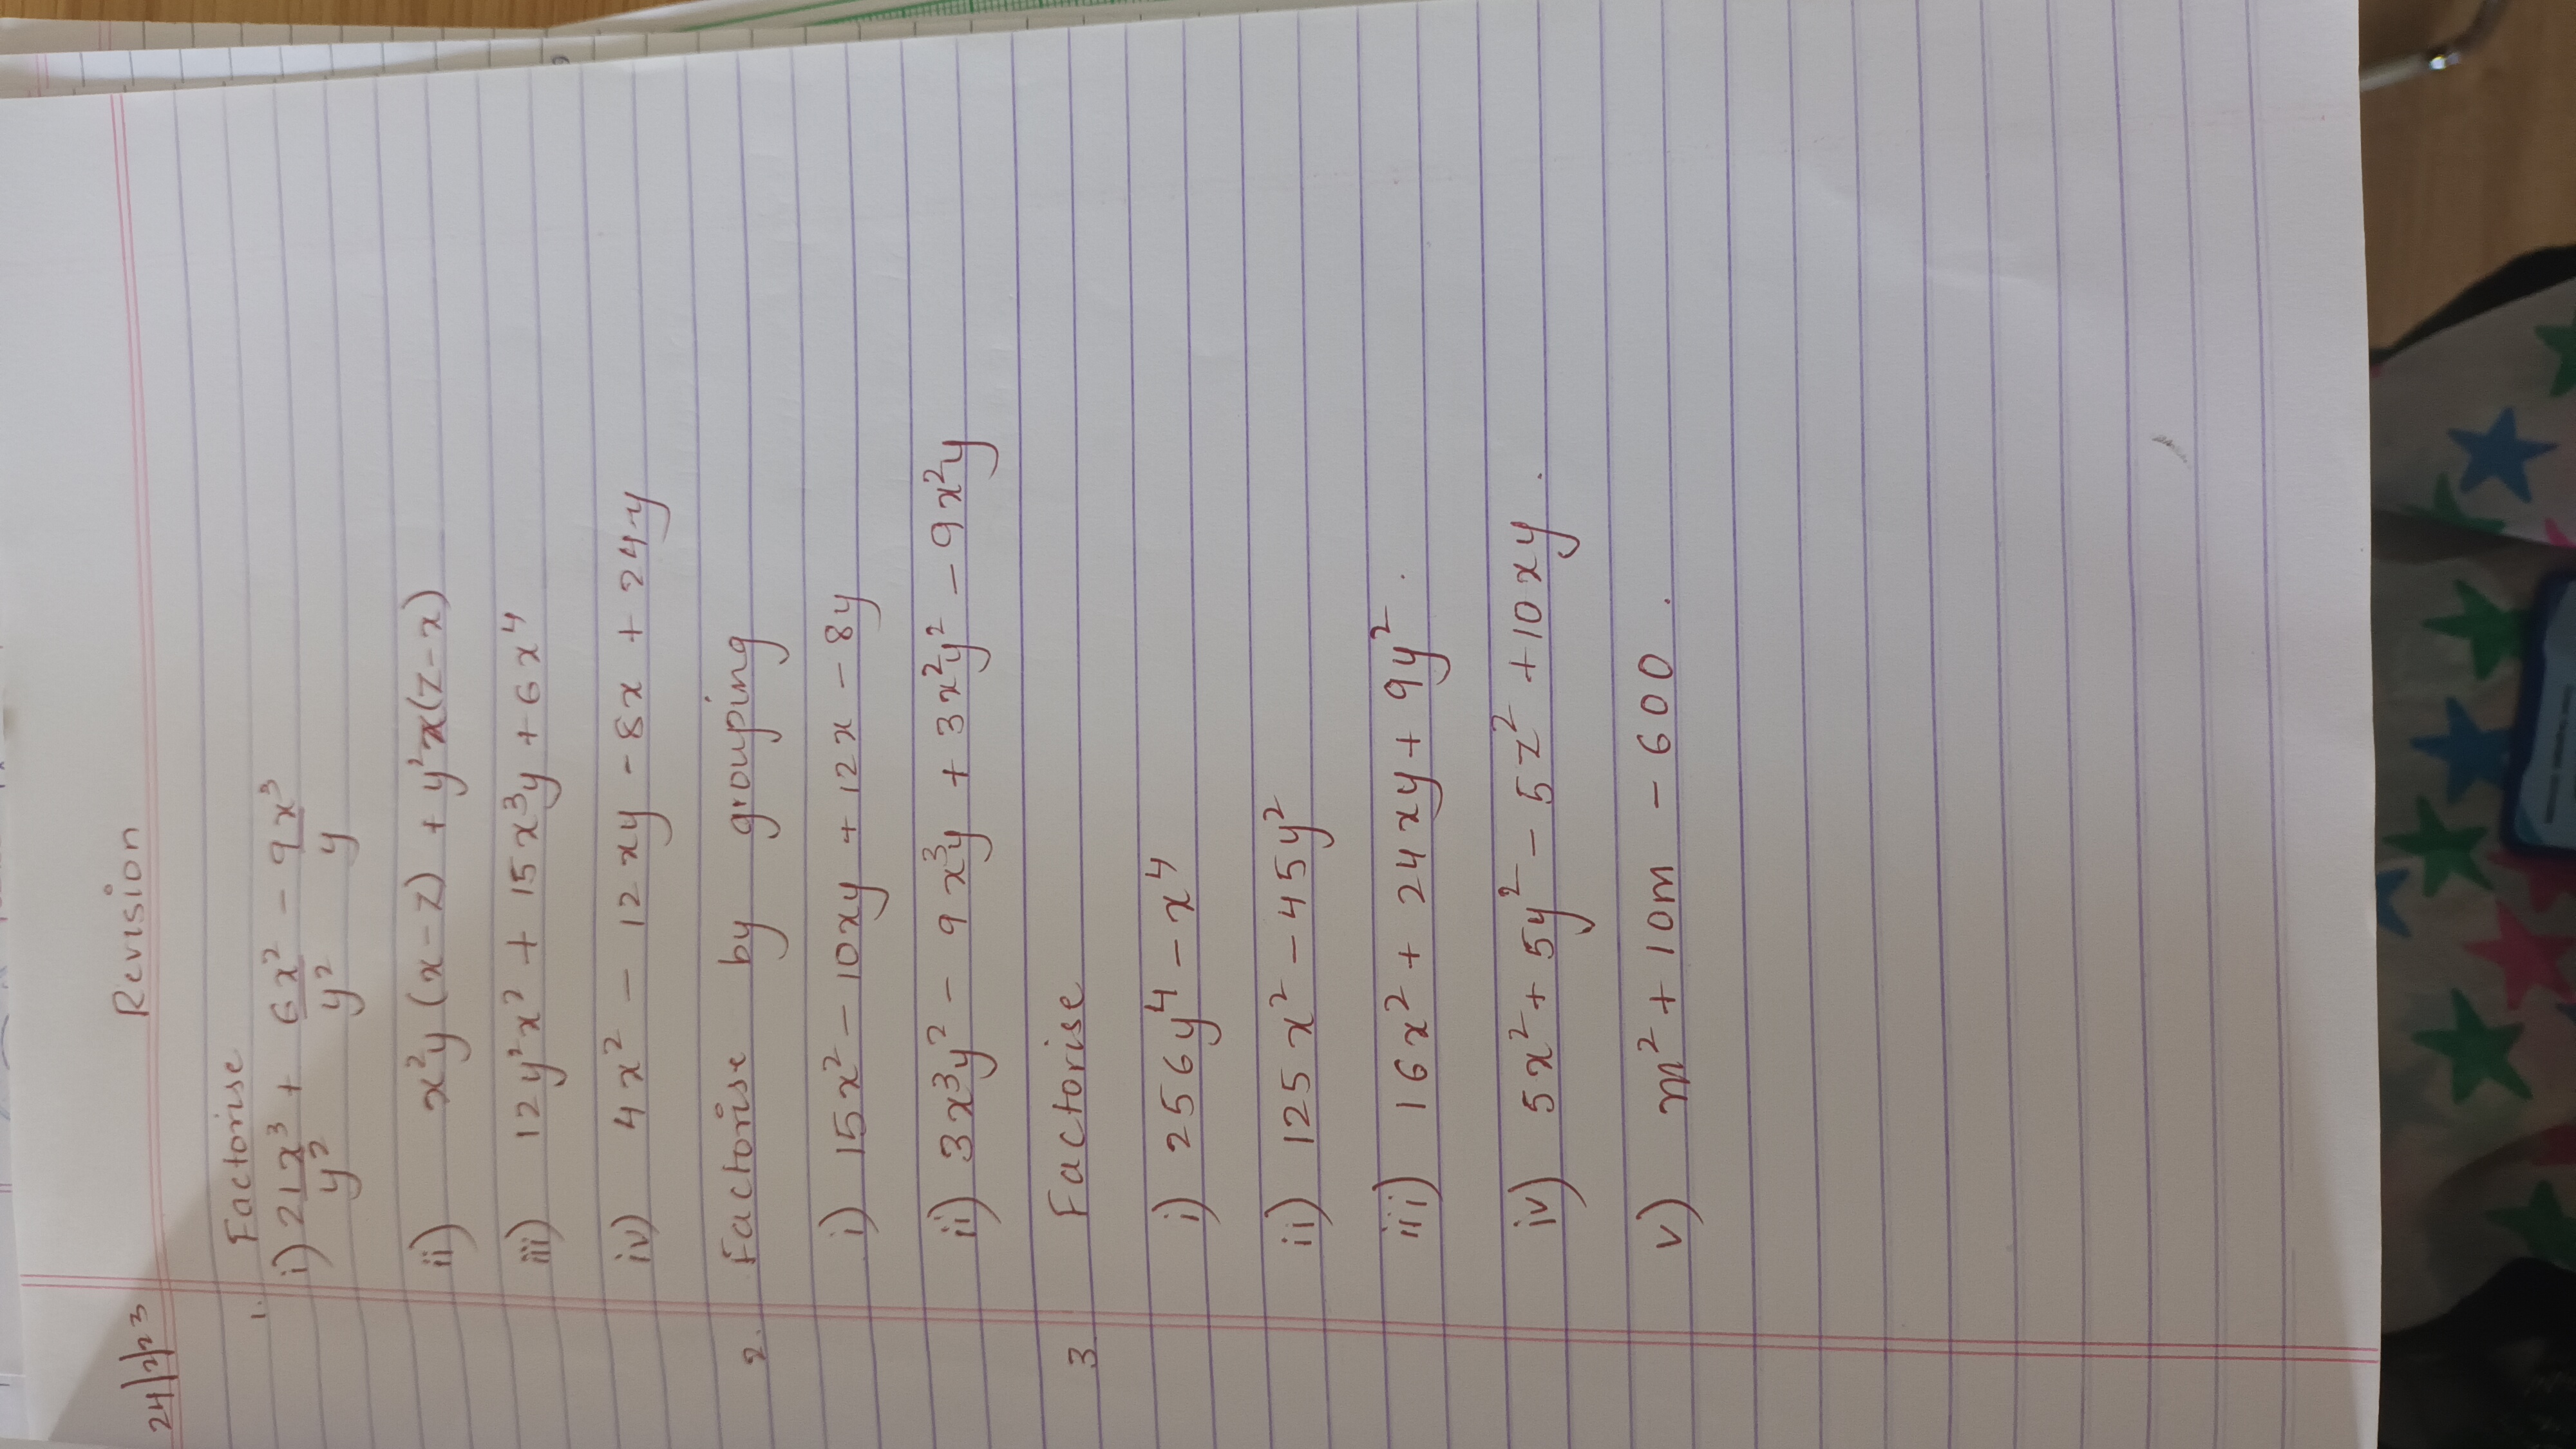 24/2/23
Revision
1. Factorise
i) 21x³/y² + 6x²/y² - 9x³/y
ii) x²y(x-z) + y²x(z-x)
iii) 12y²x² + 15x³y + 6x⁴
iv) 4x² - 12xy - 8x + 24y
2. Factorise by grouping
i) 15x² - 10xy + 12x - 8y
ii) 3x³y² - 9x³y + 3x²y² - 9x²y
3 Factorise
i) 256y⁴ - x⁴
ii) 125x² - 45y²
iii) 16x² + 24xy + 9y².
iv) 5x² + 5y² - 5z² + 10xy.
v) m² + 10m - 600.